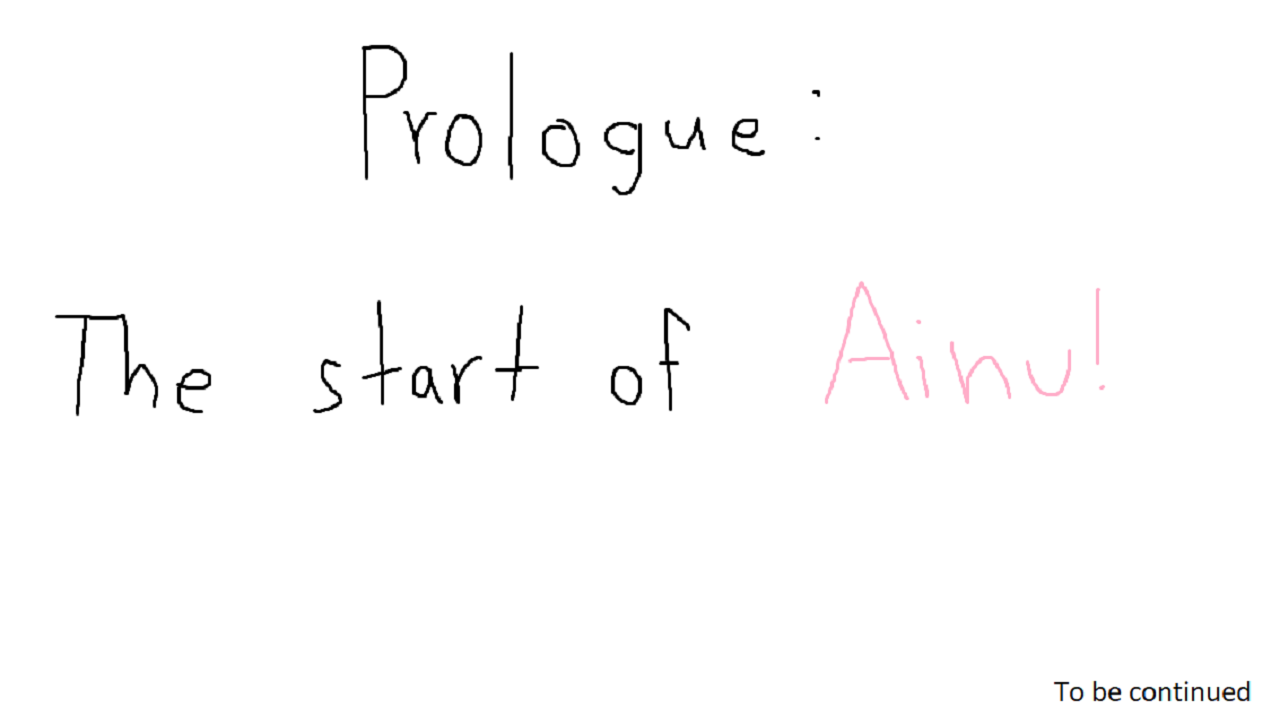 Prologue:
The start of Ainu!
To be continued